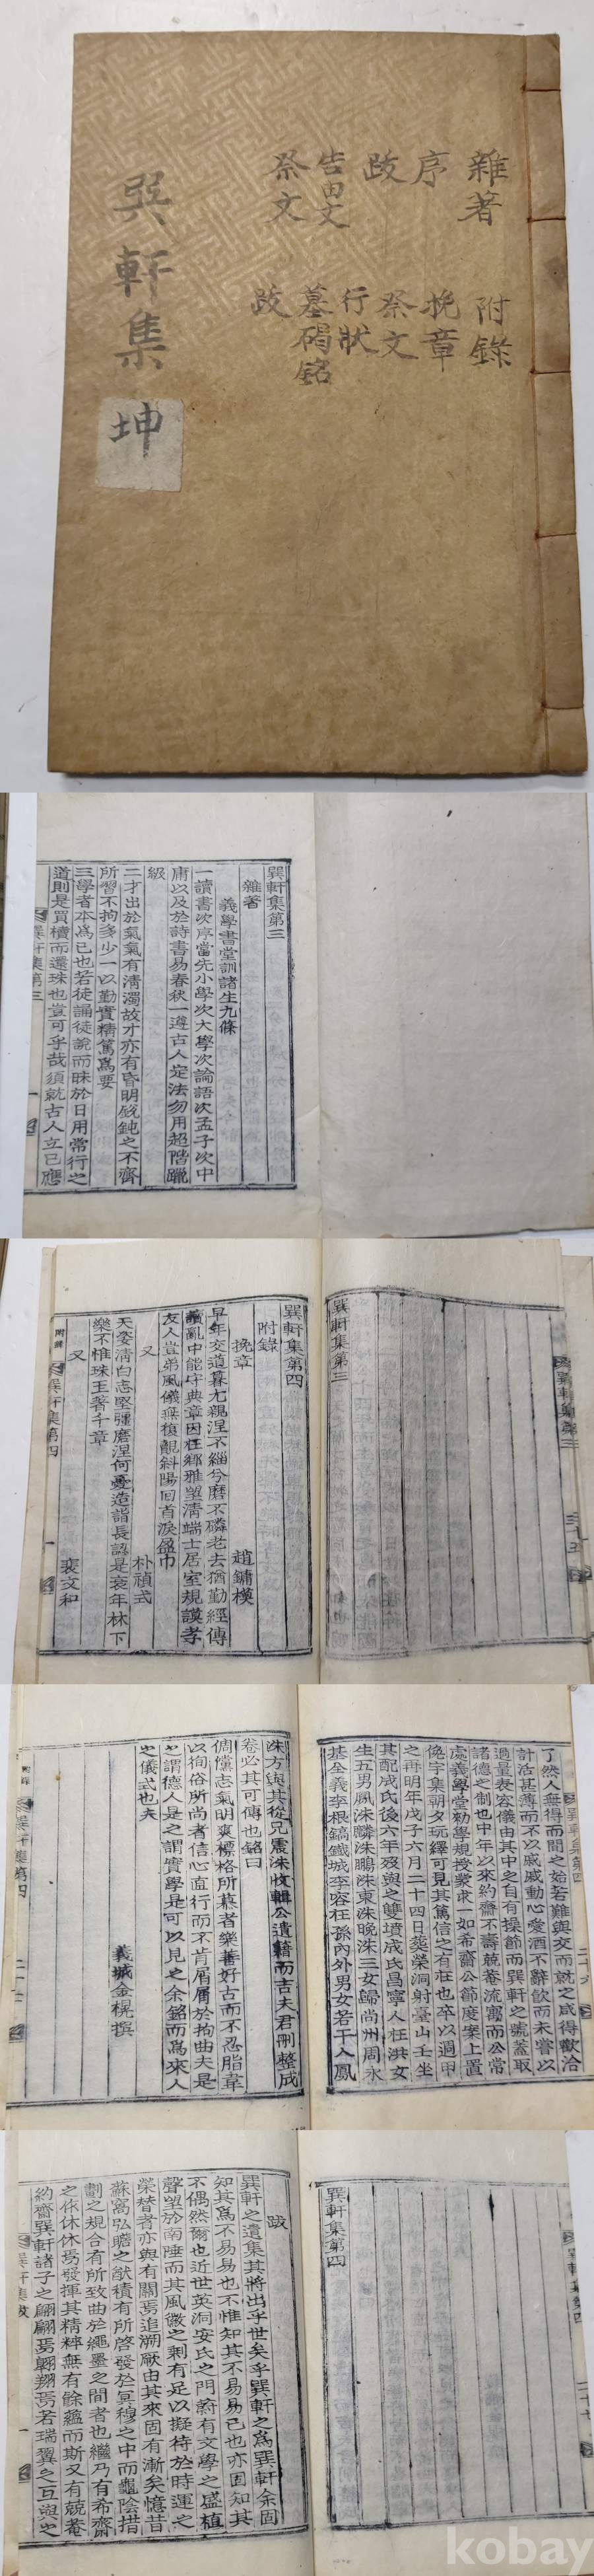 雜著
序
跋
告由文
祭文
附錄
挽章
祭文
行狀
墓碣銘
跋
巽軒集
坤
巽軒集第三
雜著
義學書堂訓諸生九條
一讀書次序當先小學次大學次論語次孟子次中
庸以及於詩書易春秋一遵古人定法勿用超階躐
級
二才出於氣氣有淸濁故才亦有昏明銳鈍之不齊
所習不拘多少一以勤實精篤爲要
三學者本爲己也若徒誦徒說而昧於日用常行之
道則是買櫝而還珠也豈可乎哉須就古人立已應
巽軒集第三
一
巽軒集第三
三十五
巽軒集第三
巽軒集第四
附錄
挽章
趙鏞模
早年交道暮尤親涅不緇兮磨不磷老去猶勤經傳
讀亂中能守典章因枉鄉雅望淸端士居室規謨孝
友人豈弟風儀無複覩斜陽回首淚盈巾
又
朴禎弎
天姿淸白志堅彊磨涅何憂造詣長認是衰年林下
樂不惟珠玉著千章
又
裴文和
附錄
巽軒集第四
一
巽軒集第四
二十六
了然人無得而間之始若難與交而就之咸得歡洽
計活甚薄而不以戚戚動心愛酒不辭飮而未嘗以
過量表容儀由其中之自有操節而巽軒之號蓋取
諸德之制也中年以來約齋不壽兢菴流寓而公常
處義學堂勑學規授衆求一如希齋公節度案上置
俛宇集朝夕玩繹可見其篤信之有在也卒以過甲
之再明年戊子六月二十四日葬榮洞射臺山壬坐
其配成氏後六年歿與之雙墳成氏昌寧人在洪女
生五男鳳洙麟洙鵬洙東洙晚洙三女歸尚州周永
基全義李根鎬鐵城李容在孫內外男女若干人鳳
洙方與其從兄震洙收輯公遺藉而吉夫君刪整成
卷必其可傳也銘曰
倜儻志氣明爽標格所慕者樂善好古而不忍脂韋
以徇俗所尚者信心直行而不肯屑屑於拘曲夫是
之謂德人是之謂實學是可以見之余銘而爲來人
之儀式也夫
義城金榥撰
巽軒集第四
二十七
巽軒集第四
巽軒集第四
二十七
跋
巽軒之遺集其將出乎世矣乎巽軒之爲巽軒余固
知其爲不易易也不惟知其不易易已也亦固知其
不偶然爾也近世英洞安氏之門蔚有文學之盛植
聲望於南陲而其風微之剩有足以擬待於時運之
榮替者亦與有關焉追溯厥由其來固有漸矣憶昔
蘇窩弘贍之猷積有所啓發於冥穆之中而龜陰措
劃之規合有所致曲於繩墨之間者也繼乃有希齋
之休休焉發揮其精粹無有餘蘊而斯又有兢菴
約齋巽軒諸子之翩翩焉翺翔焉若瑞翼之互與之
巽軒集跋
一
kobay